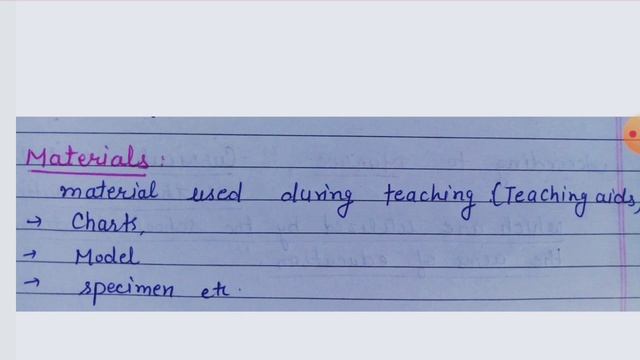 Materials:
material used during teaching (Teaching aids,
→ Charts,
→ Model
→ specimen etc.